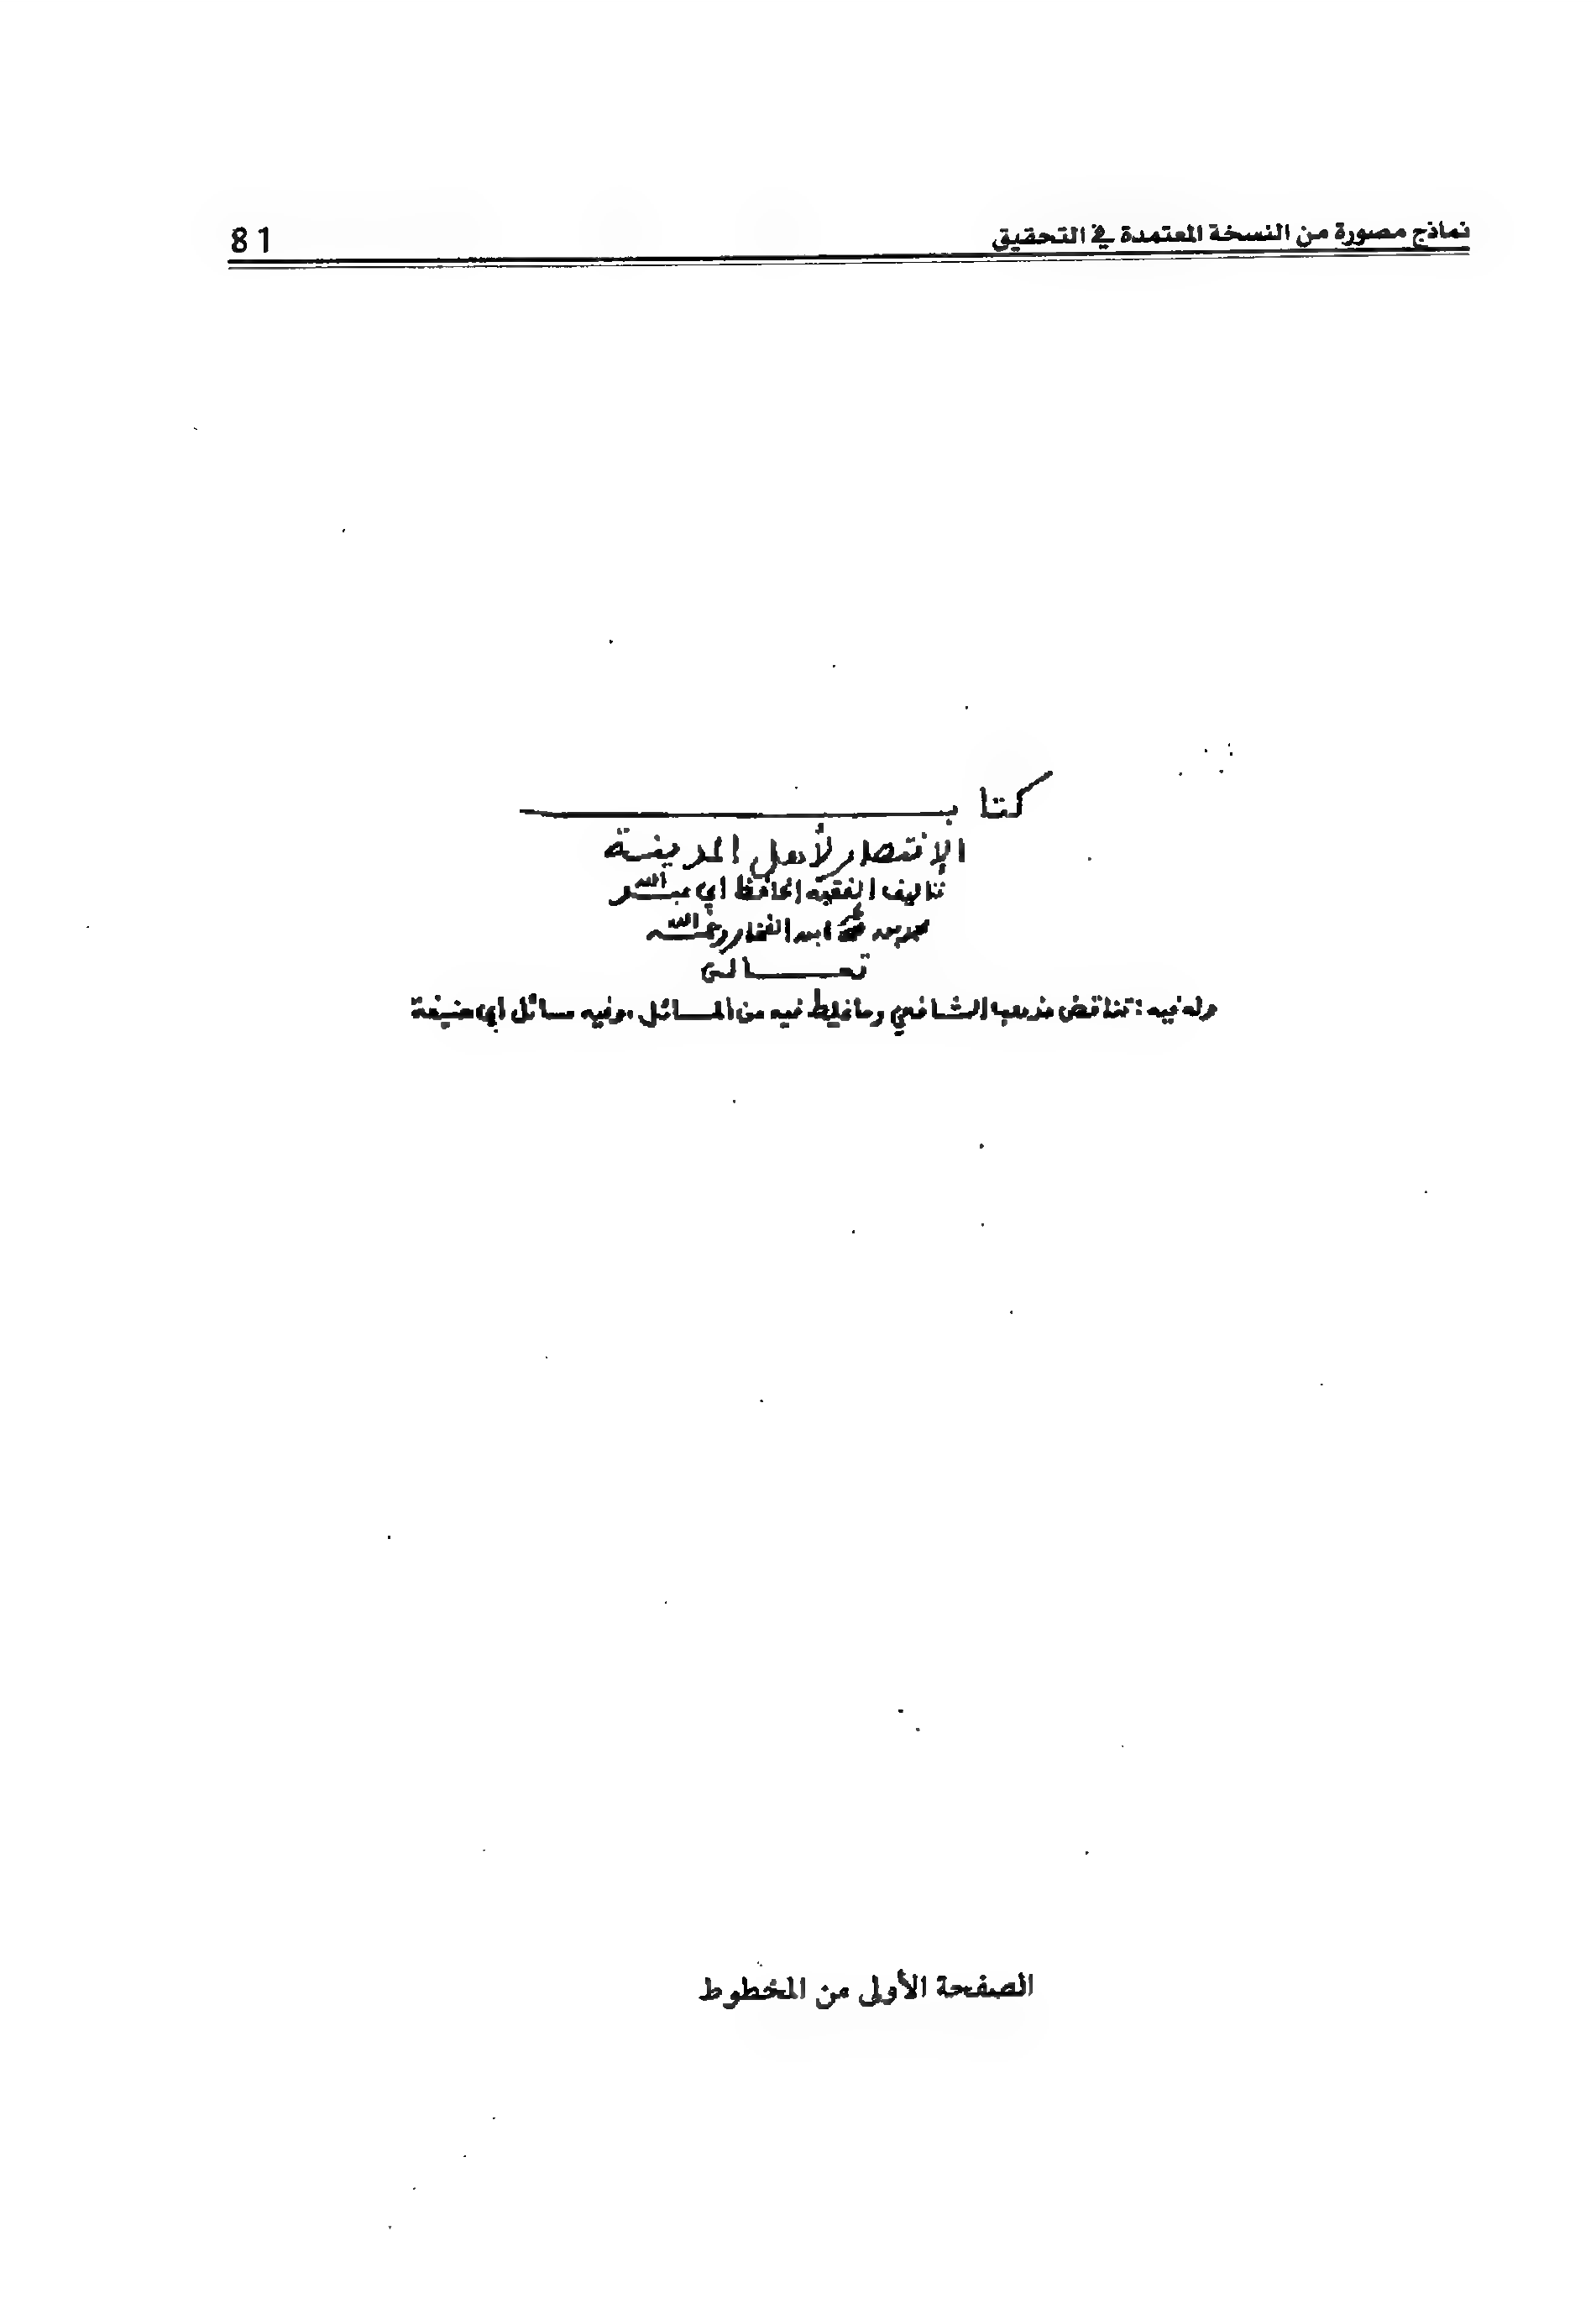 نماذج مصورة من النسخة المعتمدة في التحقيق 81
كتاب
الإنتصار لأهل المدينة
تأليف الفقيه الحافظ أبي عبد الله
محمد بن عمر ابن الفخار رحمه الله
تعالى
وله فيه : تناقض مذهب الشافعي وما غلط فيه من المسائل ، وفيه مسائل أبي حنيفة
الصفحة الأولى من المخطوط